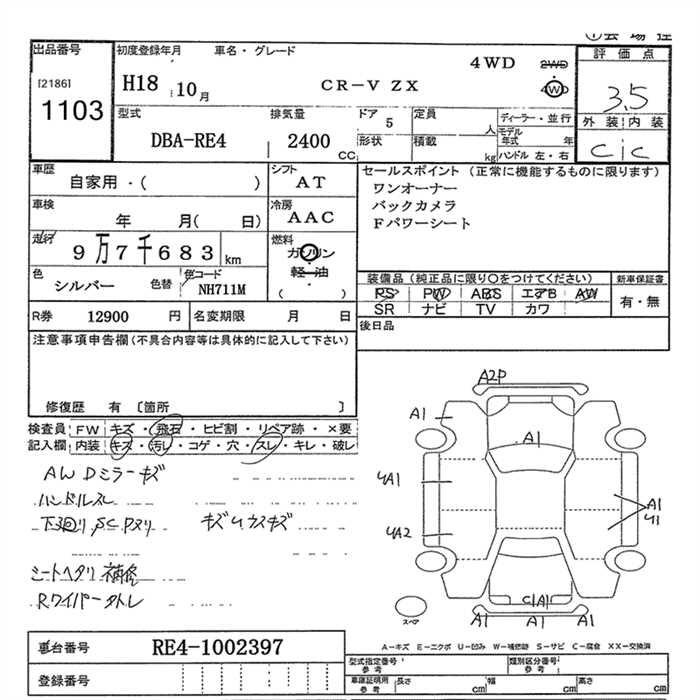 出品番号
[2186]
1103
初度登録年月 車名・グレード
H18 10月
CR-V ZX
4WD
2WD
4WD
評価点
3.5
外装 内装
C C
型式
DBA-RE4
排気量
2400
CC
ドア
5
形状
定員
人
積載
kg
ディーラー・並行
モデル年式 年
ハンドル 左・右
車歴
自家用・( )
シフト
AT
車検
年 月( 日)
冷房
AAC
走行
9万7千683 km
燃料
ガソリン
軽油
・
( )
色
シルバー
色替
色コード
NH711M
R券 12900 円
名変期限 月 日
セールスポイント (正常に機能するものに限ります)
ワンオーナー
バックカメラ
Fパワーシート
装備品(純正品に限り〇をつけてください)
PS PW ABS エアB AW
SR ナビ TV カワ
新車保証書
有・無
後日品
注意事項申告欄(不具合内容等は具体的に記入して下さい)
修復歴 有 〔箇所 〕
検査員記入欄
FW キズ・飛石・ヒビ割・リペア跡・×要
内装 キズ・汚レ・コゲ・穴・スレ・キレ・破レ
AW Dミラーキズ
ハンドルスレ
下廻り SC
キズ
シートヘタリ 補修
Rワイパー
A2P
A1
A1
A1
A2
A1
A1
A1
A1
A1
スペア
A-キズ E-エクボ U-凹み W-補修跡 S-サビ C-腐食 XX-交換済
車台番号
RE4-1002397
登録番号
型式指定番号
参考
類別区分番号
参考
車庫証明用
参考
長さ cm
幅 cm
高さ cm